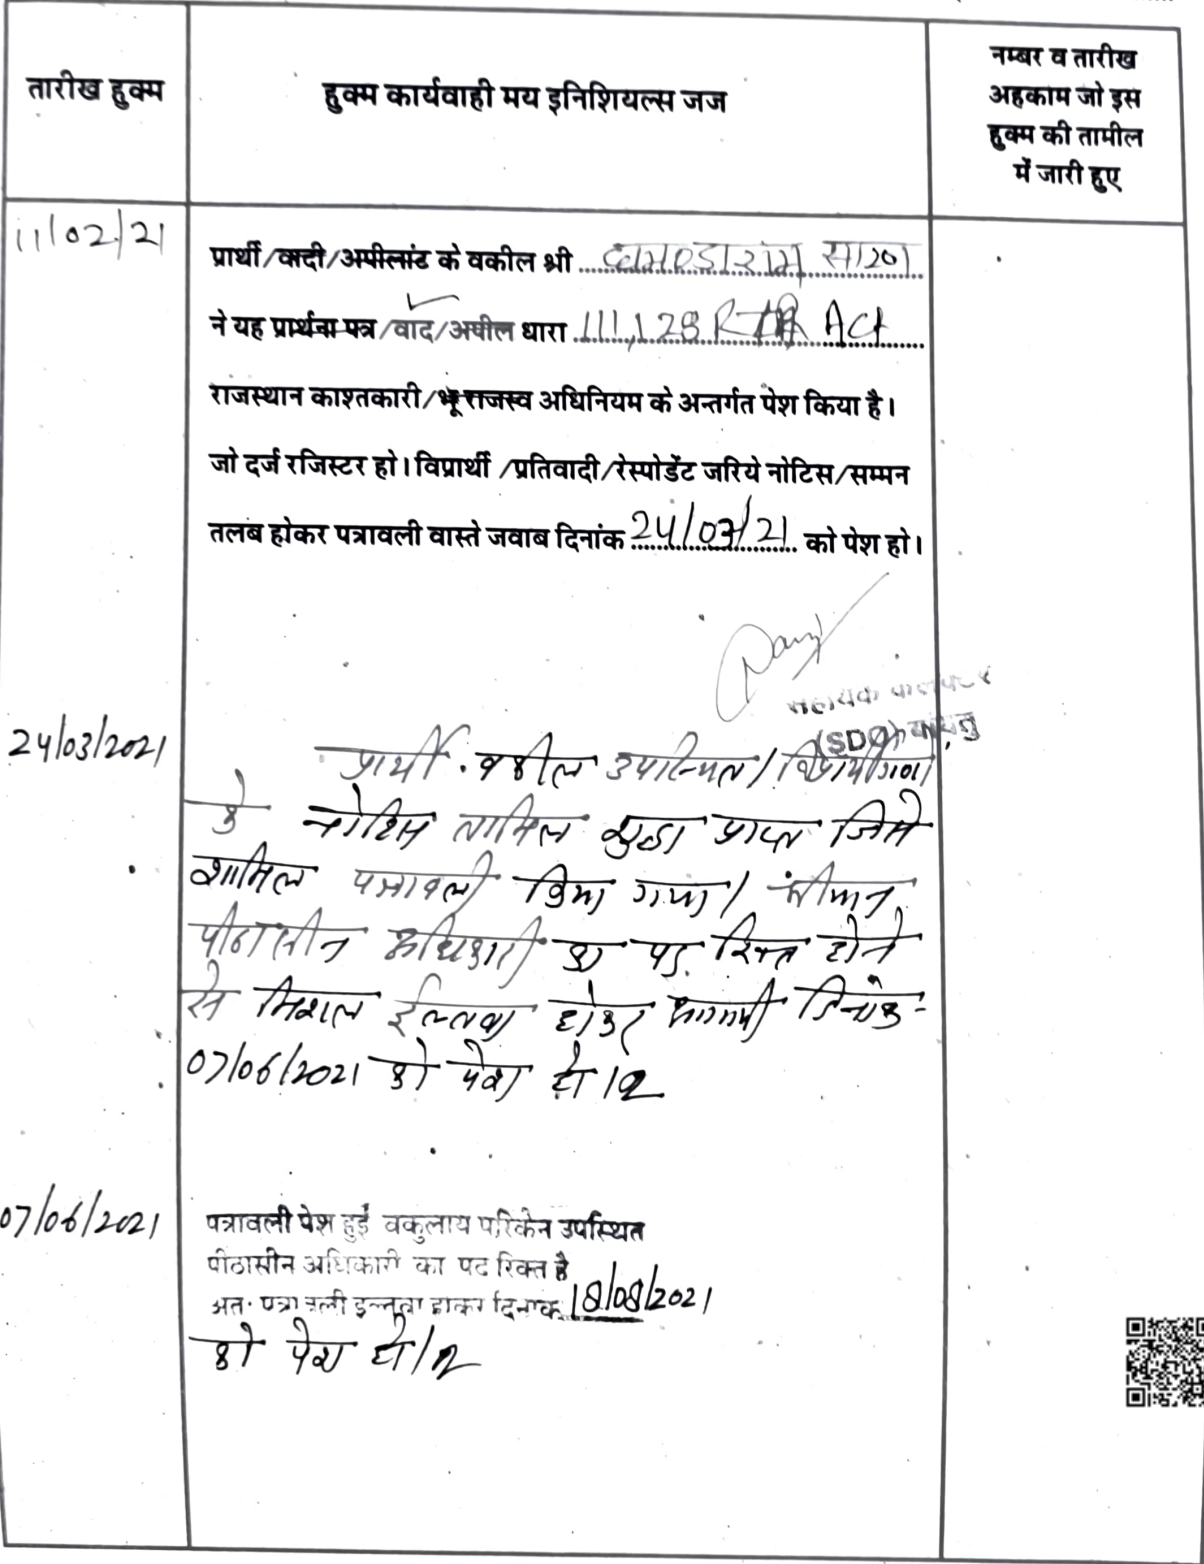 तारीख हुक्म
हुक्म कार्यवाही मय इनिशियल्स जज
नम्बर व तारीख
अहकाम जो इस
हुक्म की तामील
में जारी हुए
11/02/21
प्रार्थी/वादी/अपीलांट के वकील श्री
ने यह प्रार्थना पत्र/वाद/अपील धारा 111,128 Act
राजस्थान काश्तकारी/भू राजस्व अधिनियम के अन्तर्गत पेश किया है।
जो दर्ज रजिस्टर हो। विप्रार्थी /प्रतिवादी/रेस्पोडेंट जरिये नोटिस/सम्मन
तलब होकर पत्रावली वास्ते जवाब दिनांक 24/03/21 को पेश हो।
सहायक कलक्टर
(SDO)
24/03/2021
प्रार्थी वकील उपस्थित। विप्रार्थीगण
के नोटिस तामिल शुदा प्राप्त जिसे
शामिल पत्रावली किया गया। श्रीमान
पीठासीन अधिकारी का पद रिक्त होने
से मिशल ईल्तवा होकर आगामी दिनांक-
07/06/2021 को पेश हो।
07/06/2021
पत्रावली पेश हुई वकुलाय परिकेन उपस्थित
पीठासीन अधिकारी का पद रिक्त है
अतः पत्रावली इल्तवा होकर दिनांक 18/08/2021
को पेश हो।